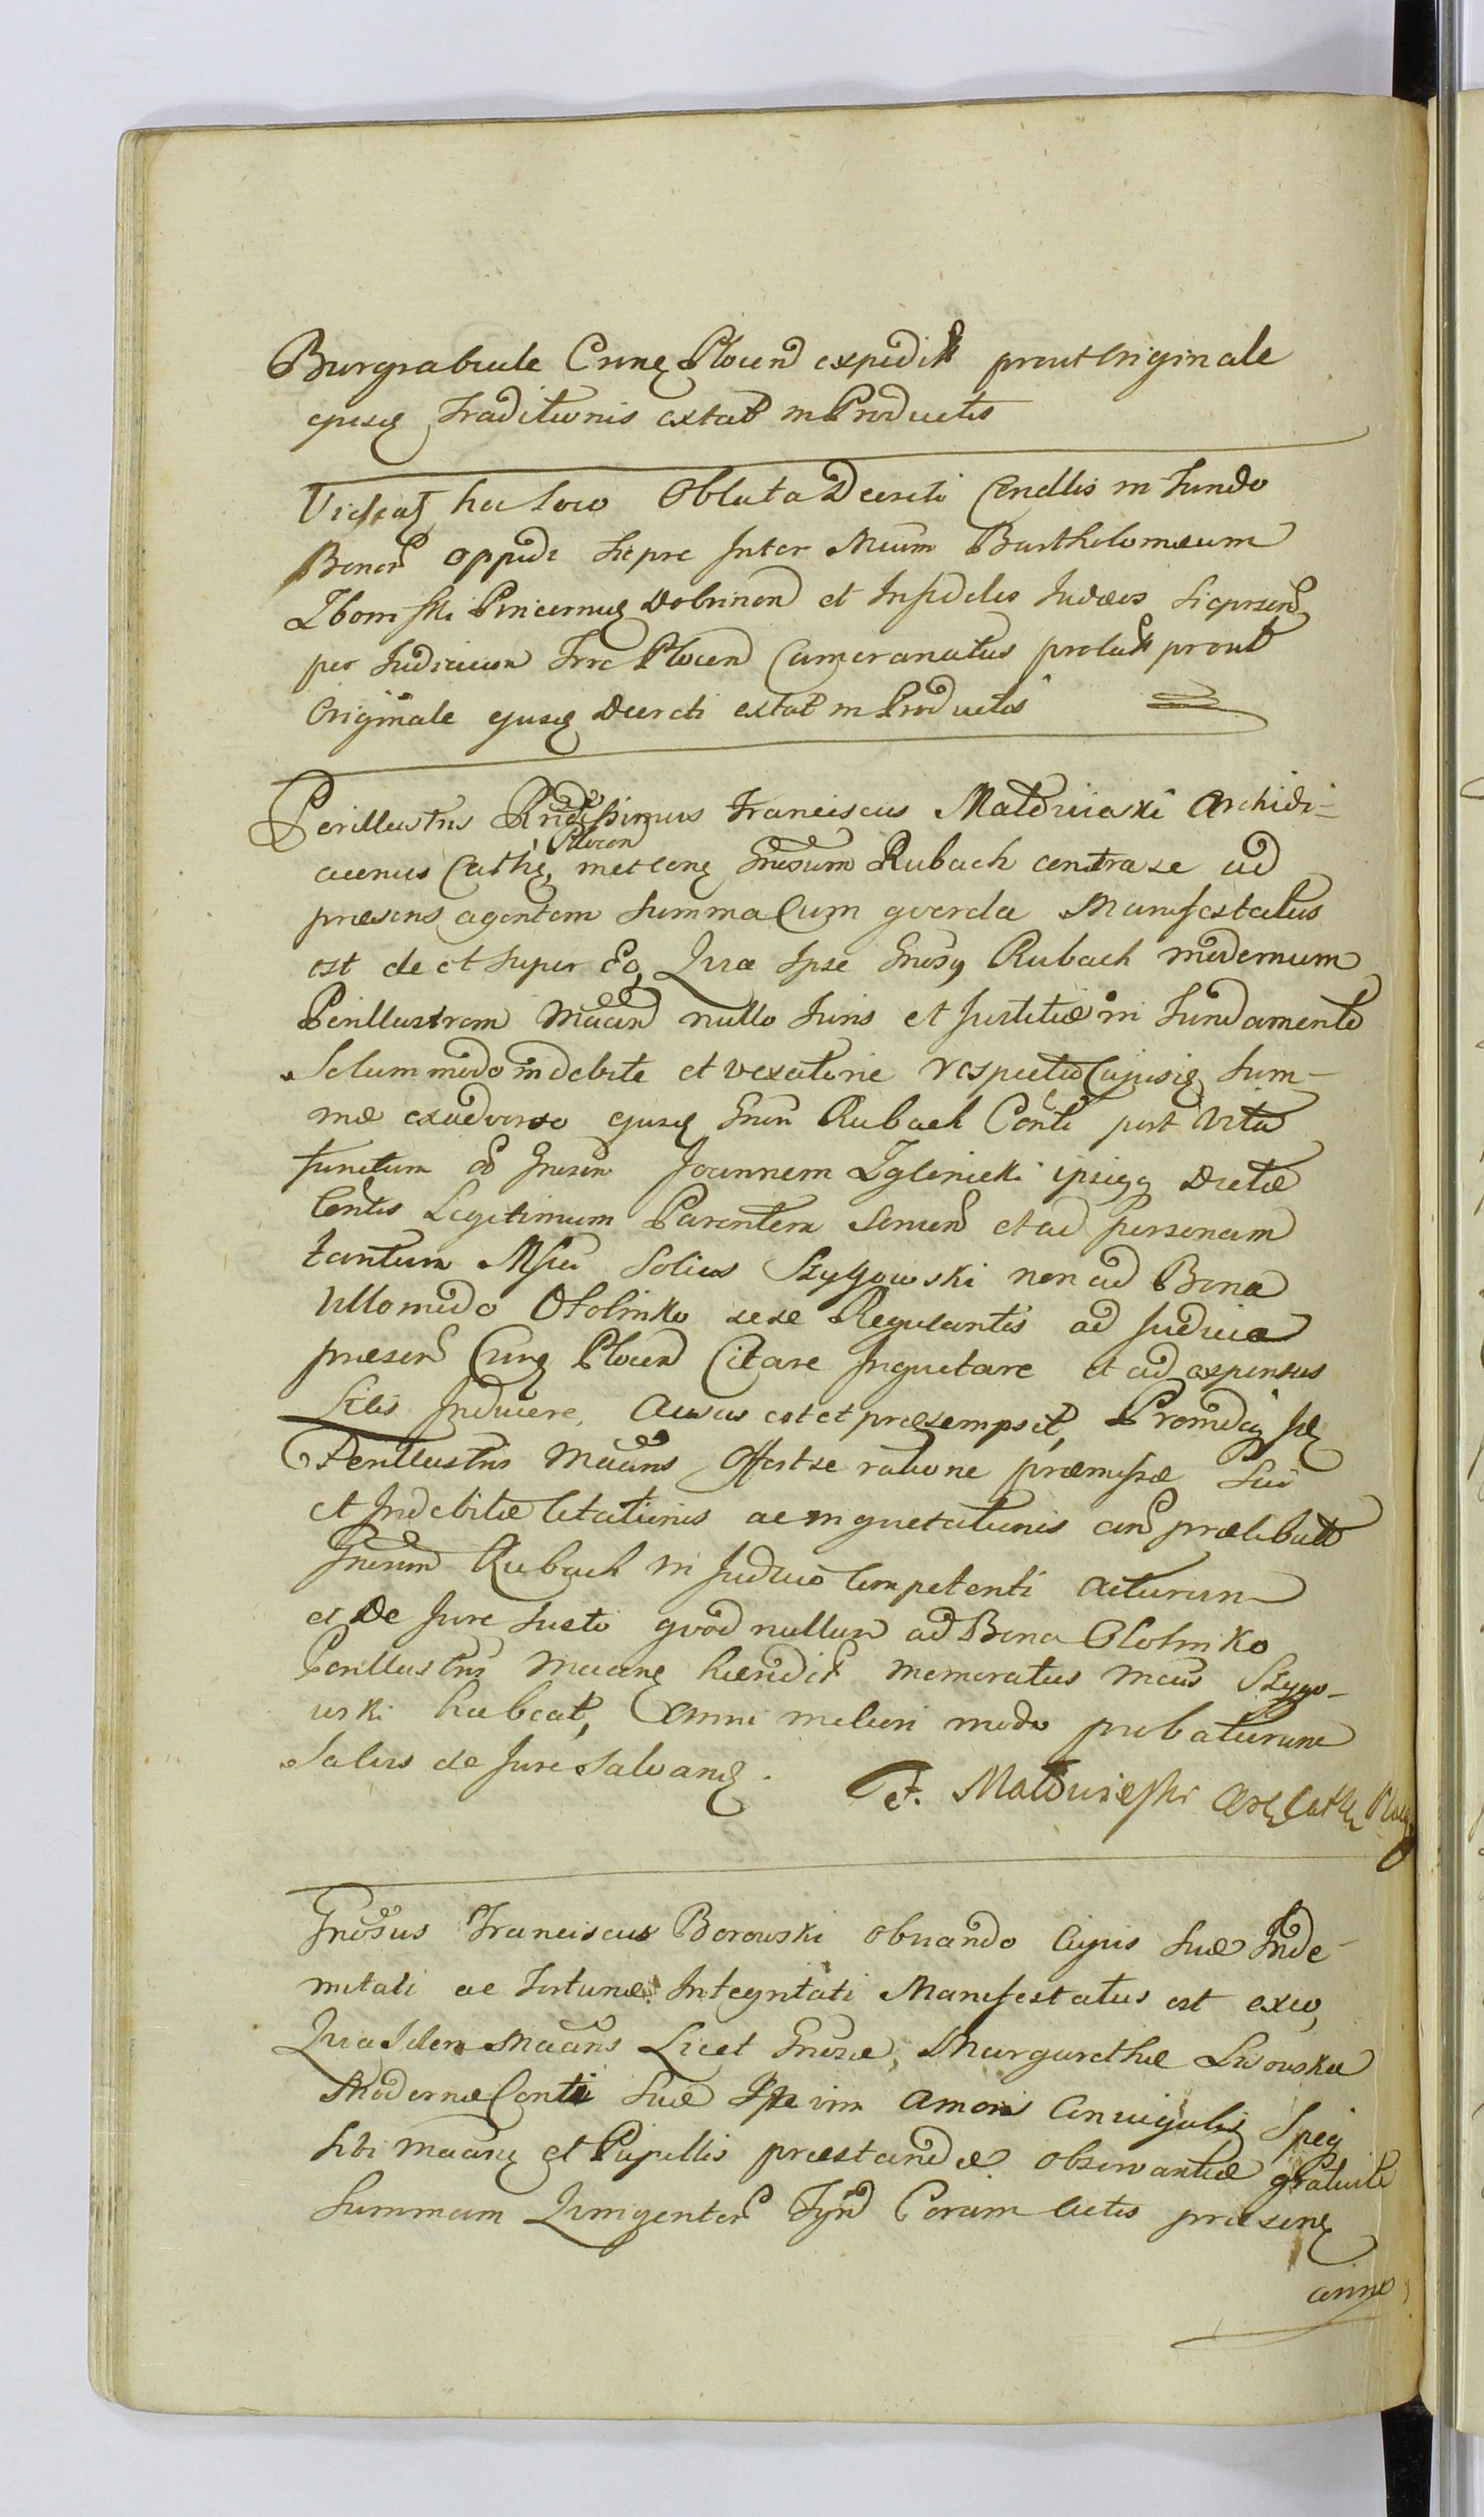 Burgrabiale Crneg Plocen expedit prout Originale
ejusq Traditionis extat in Productis
Videat hoc loco Oblata Decreti Condlis in Fundo
Bonor oppidi Sieprc Inter Mcum Bartholomæum
Zbomski Pincernug Dobrinen et Infideles Judæos Sieprsen
per Judicium Trrc Plocen Cameranatus prolat prout
Originale ejusq Decreti extat in Productis
Perillustris Rndissimus Franciscus Maldziński Archidi-
aconus Cathe Plocen met Gnosum Rubach contra se ad
præsens agentem Summa Cum qverela Manifestatus
est de et super Eo, Quia Ipse Gnosq Rubach modernum
Perillustrem Maan nullo Juris et Justitiæ in Fundamento
Solummodo indebite et vexatorie respectu Cujusiq Sum-
mæ exadverso ejusq Gnen Rubach Conti post Vita
functum Gnosum Joannem Zglinicki ipsiqq Dictæ
Contis Legitimum Parentem et ad personam
tantum solius Szygowski non ad Bona
Ullomodo Ossolinko sese Regulantis ad Judicia
præsen Crneg Plocen Citare Inquietare et ad expensas
Litis Inducere, Ausus est et præsempsit, Promdq Id
Perillustris Maans Offert se ratione præmissæ sui
et Indebitæ Citationis ac inquietationis con prælibatt
Gnosum Rubach in Judicio Competenti Acturum
et De Jure Justo qvod nullum ad Bona Ololinko
Perillustris Maang hæredit memoratus Mcus Szygo-
wski habeat, Omni meliori modo probaturum
Salvis de Jure Salvand.
F. Maldziński Arch Cath Ploc
Gnosus Franciscus Borowski obviando Cujus Suæ Inde-
mnitati ac Fortunæ Integritati Manifestatus est exeo,
Quia Idem Maans Licet Gnosæ Margarethæ Lisowska
Modernæ Conti Suæ Spe vim Amoris Conjugalis Speq
Sibi Maang et Pupillis præstandæ observantiæ gratuite
Summam Quingentor Tynf Coram Actis præseng
anno